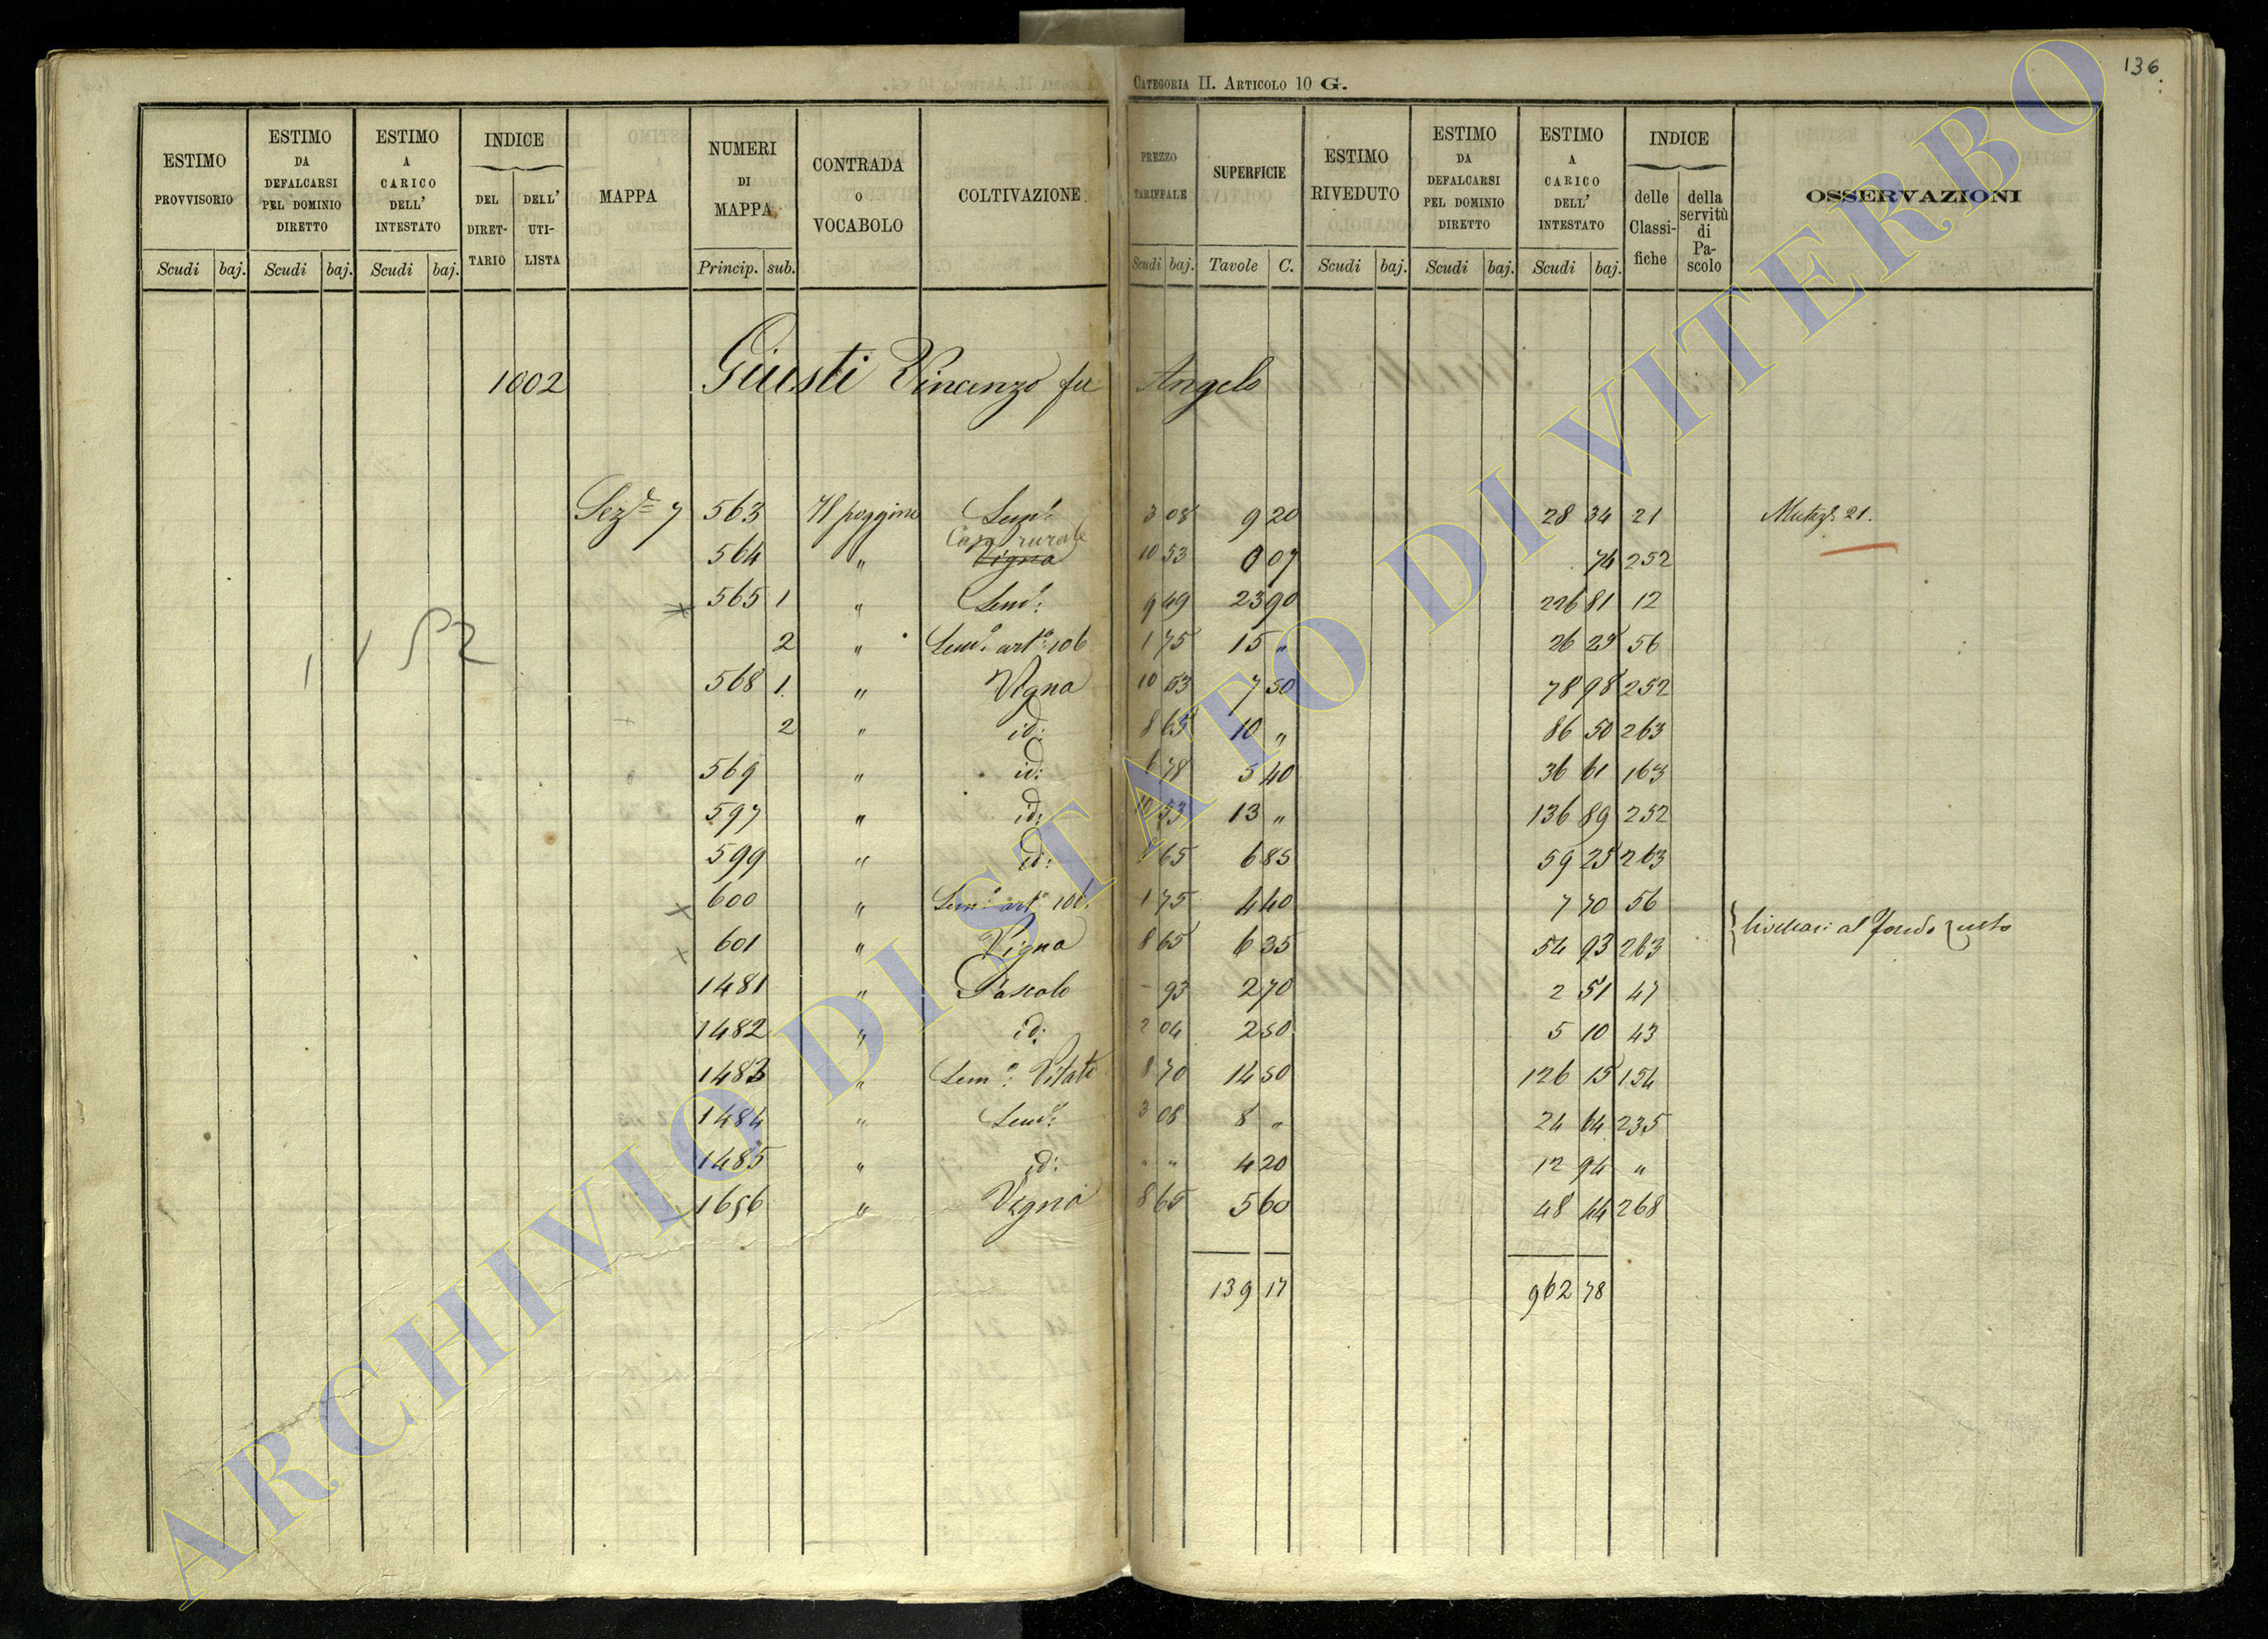 136
CATEGORIA II. ARTICOLO 10 G.
ESTIMO PROVVISORIO Scudi baj.
ESTIMO DA DEFALCARSI PEL DOMINIO DIRETTO Scudi baj.
ESTIMO A CARICO DELL' INTESTATO Scudi baj.
INDICE DEL DIRET-TARIO DELL' UTI-LISTA
MAPPA
NUMERI DI MAPPA Princip. sub.
CONTRADA O VOCABOLO
COLTIVAZIONE
PREZZO TARIFFALE Scudi baj.
SUPERFICIE Tavole C.
ESTIMO RIVEDUTO Scudi baj.
ESTIMO DA DEFALCARSI PEL DOMINIO DIRETTO Scudi baj.
ESTIMO A CARICO DELL' INTESTATO Scudi baj.
INDICE delle Classi-fiche della servitù di Pa-scolo
OSSERVAZIONI
1002 Giusti Vincenzo fu Angelo
Sez.e 7 563 Il poggino Sem.o 3 08 9 20 28 34 21
Casa rurale
564 " Vigna 10 53 0 07 74 252
565 1 " Sem.o 9 49 23 90 226 81 12
2 " Sem.o art.o 106 1 75 15 " 26 25 56
568 1 " Vigna 10 53 7 50 78 98 252
2 " id: 8 65 10 " 86 50 263
569 " id: 6 78 5 40 36 61 163
597 " id: 10 53 13 " 136 89 252
599 " id: 8 65 6 85 59 25 263
600 " Sem.o art.o 106 1 75 4 40 7 70 56
601 " Vigna 8 65 6 35 54 93 263
1481 " Pascolo - 93 2 70 2 51 47
1482 " id: 2 04 2 50 5 10 43
1483 " Sem.o Vitato 8 70 14 50 126 15 154
1484 " Sem.o 3 08 8 " 24 64 235
1485 " id: " " 4 20 12 94 "
1656 " Vigna 8 65 5 60 48 44 268
139 17 962 78
ARCHIVIO DI STATO DI VITERBO